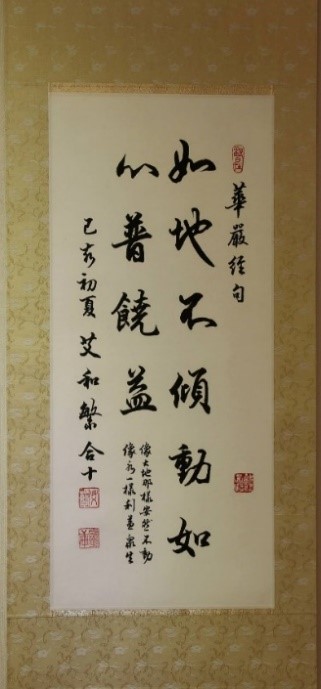 華嚴經句
如地不傾動如
水普饒益
像大地那様安然不動
像水一様利益衆生
己亥初夏 艾和繁合十